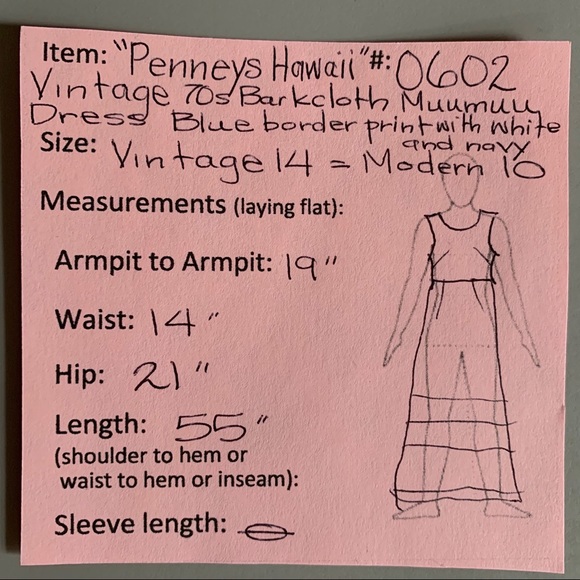 Item: "Penneys Hawaii" #: 0602
Vintage 70s Barkcloth Muumuu
Dress Blue border print with white
and navy
Size: Vintage 14 = Modern 10
Measurements (laying flat):
Armpit to Armpit: 19"
Waist: 14"
Hip: 21"
Length: 55"
(shoulder to hem or
waist to hem or inseam):
Sleeve length: